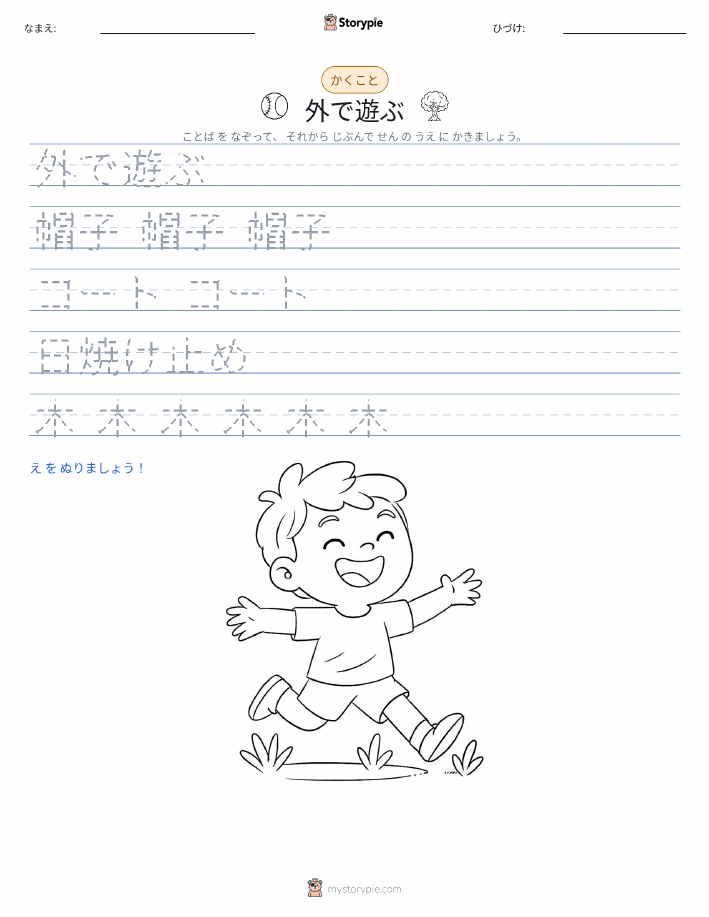 なまえ:
Storypie
ひづけ:
かくこと
外で遊ぶ
ことば を なぞって、 それから じぶんで せん の うえ に かきましょう。
外で遊ぶ
帽子 帽子 帽子
コート コート
日焼け止め
木 木 木 木 木 木
え を ぬりましょう！
mystorypie.com